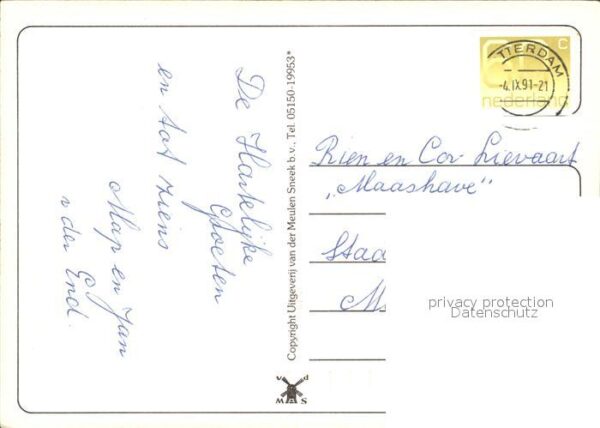 De Hartelijke
Groeten
en tot ziens
Map en Jan
v der End.
Copyright Uitgeverij van der Meulen Sneek b.v., Tel. 05150-19953*
v d
M S
c
nederland
TTERDAM
-4.IX.91-21
Rien en Cor Lievaart
„Maashave"
Staa
M
privacy protection
Datenschutz